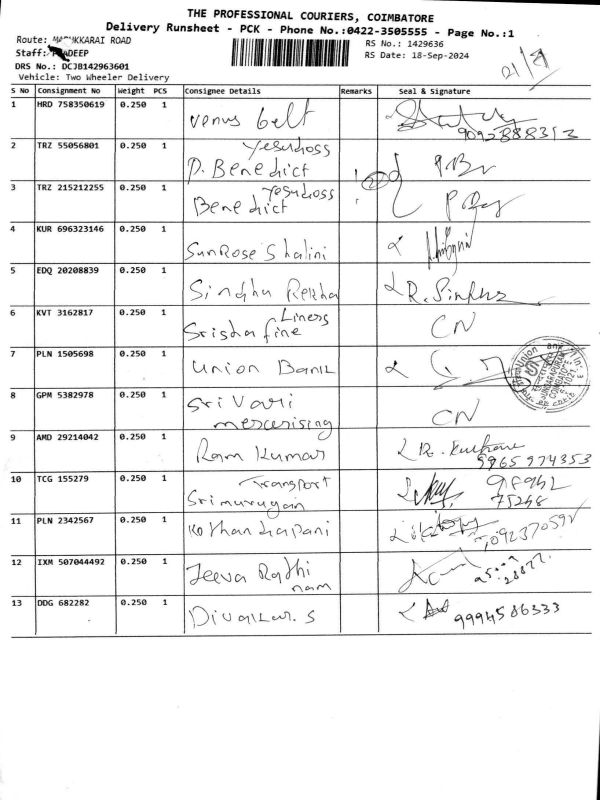 THE PROFESSIONAL COURIERS, COIMBATORE
Delivery Runsheet - PCK - Phone No.:0422-3505555 - Page No.:1
Route: KKARAI ROAD
RS No.: 1429636
Staff: DEEP
RS Date: 18-Sep-2024
DRS No.: DCJB142963601
Vehicle: Two Wheeler Delivery
21/9
S No Consignment No Weight PCS Consignee Details Remarks Seal & Signature
1 HRD 758350619 0.250 1 Venus belt
9092888313
2 TRZ 55056801 0.250 1 Yesudoss
P. Benedict P.Br
3 TRZ 215212255 0.250 1 Yesudoss
Benedict 2
4 KUR 696323146 0.250 1 SunRose Shalini
5 EDQ 20208839 0.250 1 Sindhu Rekha
6 KVT 3162817 0.250 1 Liners
Srisha fine CN
7 PLN 1505698 0.250 1 Union Bank
8 GPM 5382978 0.250 1 Sri Vari
mercerising CN
9 AMD 29214042 0.250 1 Ram Kumar
9965974353
10 TCG 155279 0.250 1 Transport
Srimurugan 75248
11 PLN 2342567 0.250 1 Kothandapani
12 IXM 507044492 0.250 1 Jeeva Rathi
nam
13 DDG 682282 0.250 1 Divakar. S
9994586333